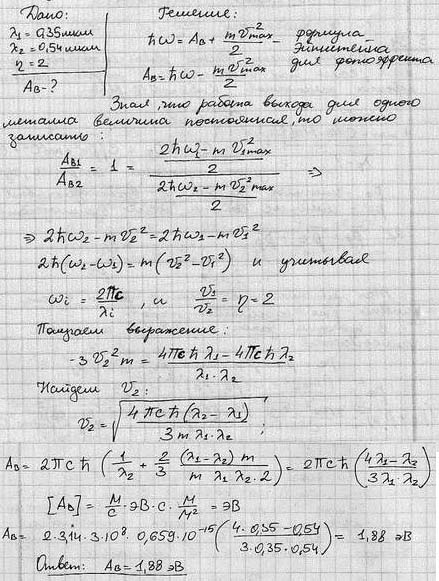 Дано:
λ₁ = 0,35 мкм
λ₂ = 0,54 мкм
η = 2
A_B - ?
Решение:
ħω = A_B + mv²max/2 - формула Эйнштейна для фотоэффекта
A_B = ħω - mv²max/2
Зная, что работа выхода для одного
металла величина постоянная, то можно
записать:
A_B1/A_B2 = 1 = ((2ħω₁ - mv₁²max)/2)/((2ħω₂ - mv₂²max)/2) ⇒
⇒ 2ħω₂ - mv₂² = 2ħω₁ - mv₁²
2ħ(ω₂ - ω₁) = m(v₂² - v₁²) и учитывая
ωᵢ = 2πc/λᵢ, и v₁/v₂ = η = 2
Получаем выражение:
-3v₂²m = (4πcħλ₁ - 4πcħλ₂)/(λ₁·λ₂)
Найдем v₂:
v₂ = √(4πcħ(λ₂ - λ₁)/(3mλ₁λ₂));
A_B = 2πcħ(1/λ₂ + 2/3 (λ₁-λ₂)m/(mλ₁λ₂·2)) = 2πcħ((4λ₁ - λ₂)/(3λ₁λ₂))
[A_B] = м/с · эВ·с · м/м² = эВ
A_B = 2·3,14·3·10⁸·0,659·10⁻¹⁵((4·0,35 - 0,54)/(3·0,35·0,54)) = 1,88 эВ
Ответ: A_B = 1,88 эВ